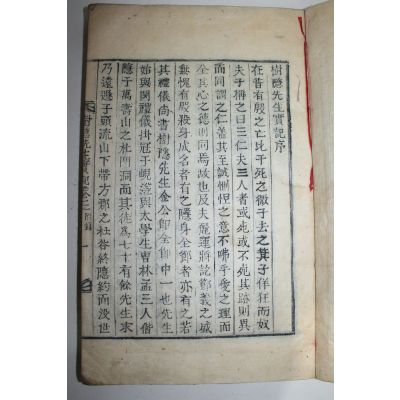 樹隱先生實記序
在昔有殷之亡比干死之微子去之箕子佯狂而奴
夫子稱之曰三仁夫三人者或死或不死其跡則異
而同謂之仁盖其至誠惻怛之意不咈乎愛之理而
全其心之德則同焉故也及夫麗運將訖節義之盛
無愧有殷殺身成名者有之隱身全節者亦有之若
其禮儀尚書樹隱先生金公卽全節中一也先生
始與閔禮儀掛冠于峴遂與太學生曺林孟三人偕
隱于萬壽山之杜門洞而其徒爲七十有餘先生末
乃遠遯于頭流山下帶方郡之杜谷終隱約而沒世
樹隱先生實記卷之三 附錄 一